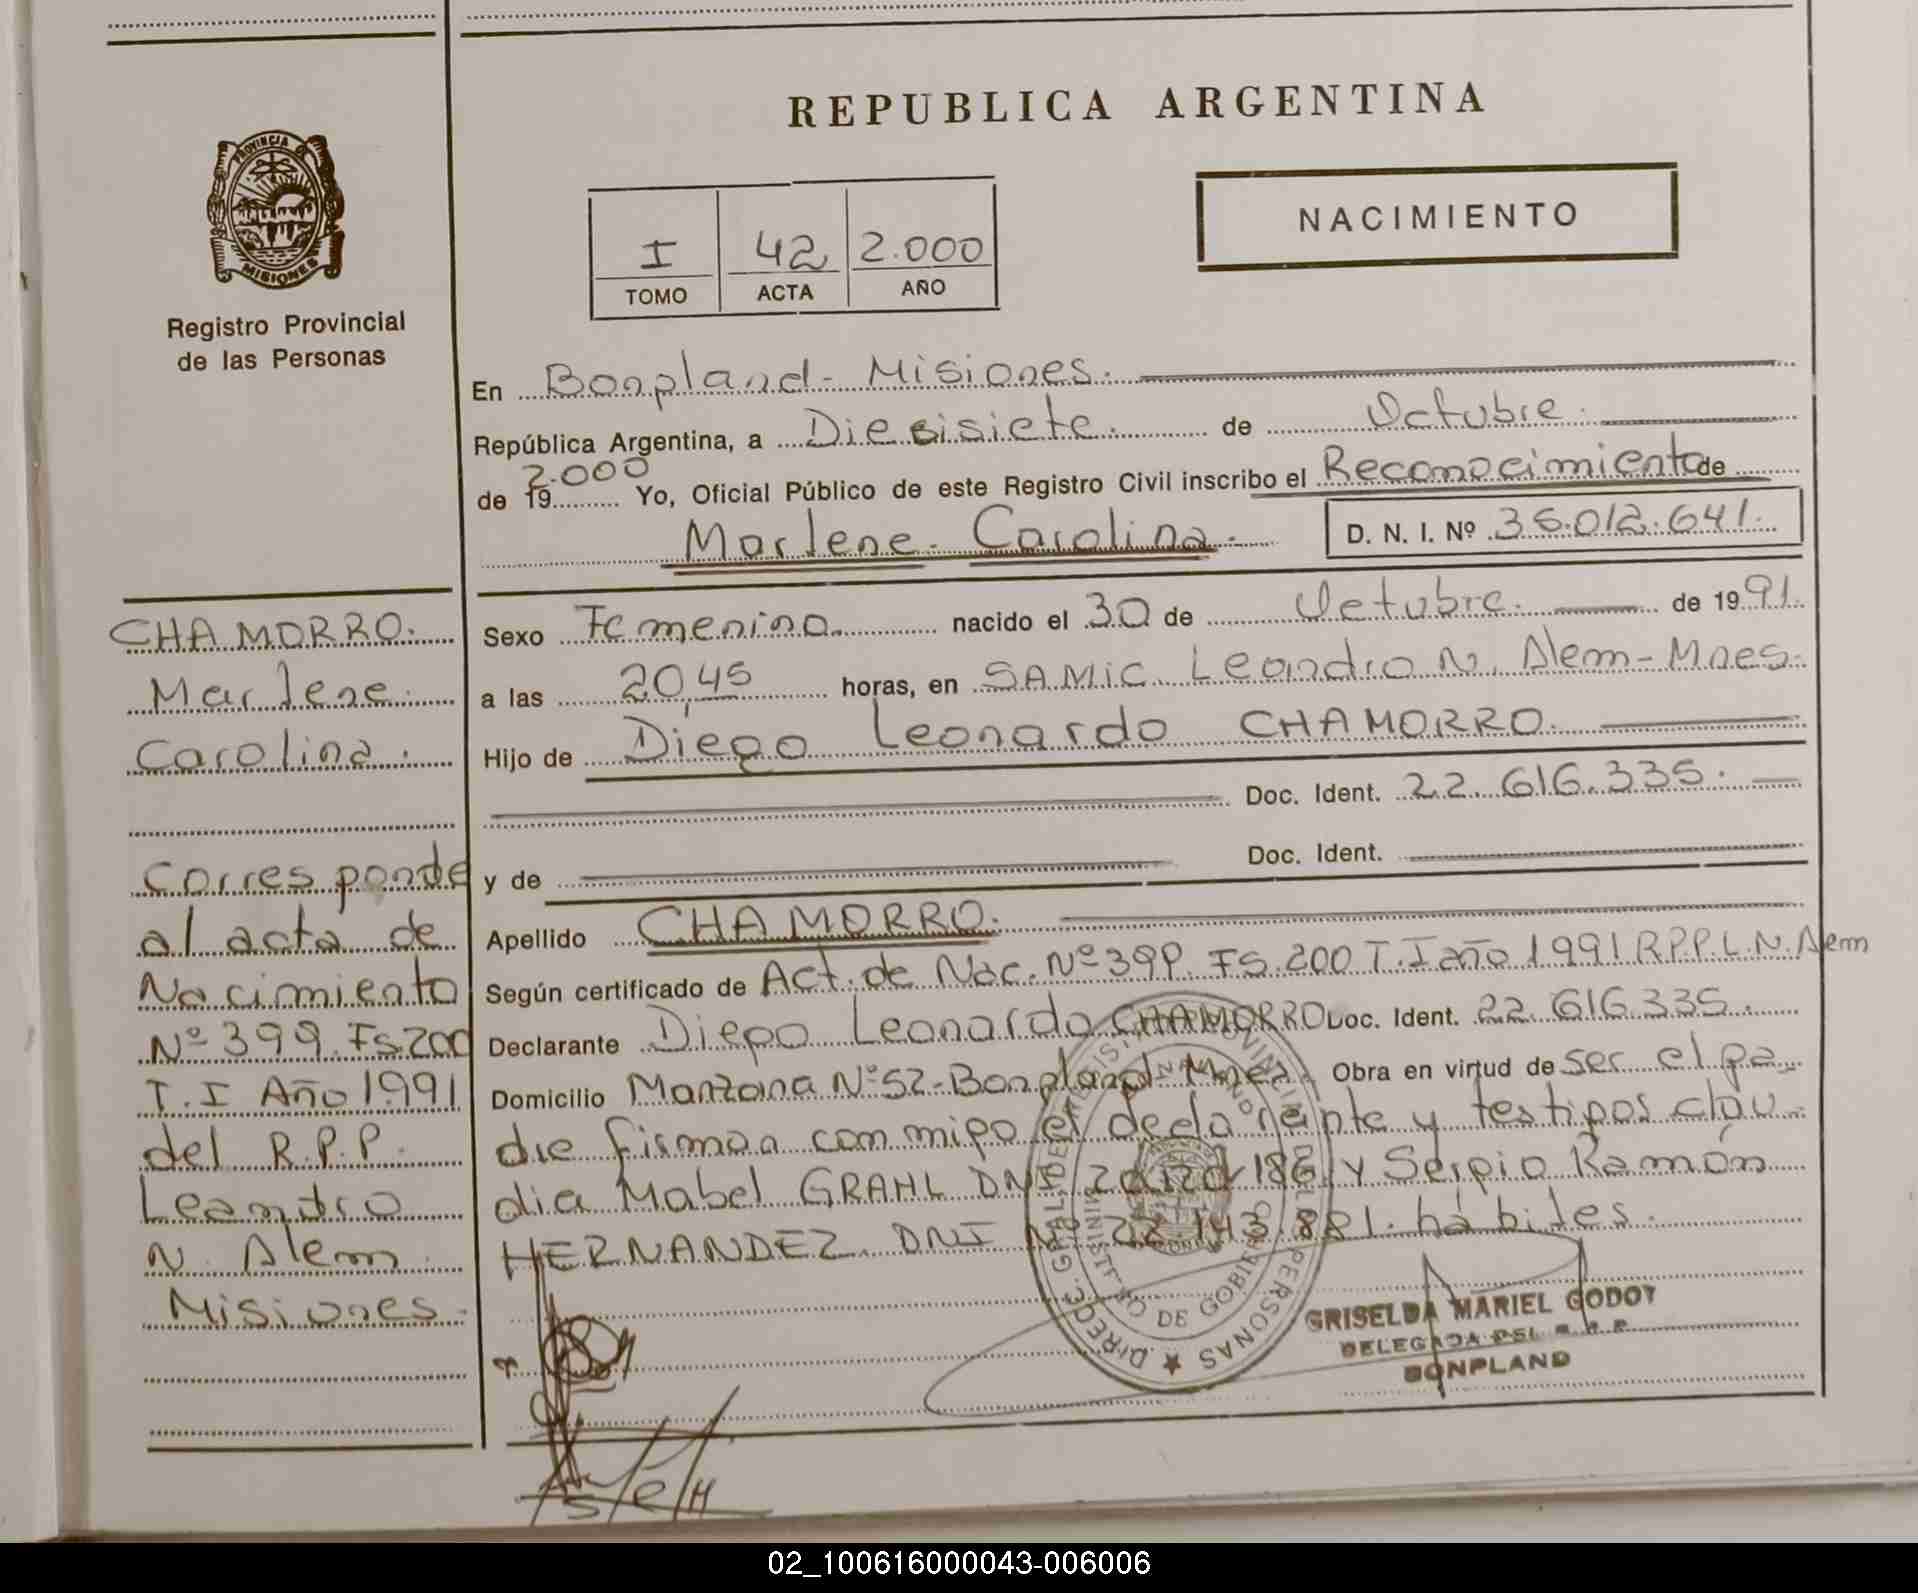 REPUBLICA ARGENTINA
PROVINCIA DE
MISIONES
Registro Provincial
de las Personas
I 42 2.000
TOMO ACTA AÑO
NACIMIENTO
En Bonpland - Misiones.
República Argentina, a Diesisiete. de Octubre.
de 19 2.000 Yo, Oficial Público de este Registro Civil inscribo el Reconocimiento de
Marlene Carolina. D. N. I. Nº 36.012.641.
CHAMORRO.
Marlene
Carolina.
Corresponde
al acta de
Nacimiento
Nº 399 Fs.200
T. I Año 1991
del R.P.P.
Leandro
N. Alem
Misiones.
Sexo Femenino. nacido el 30 de Octubre. de 1991.
a las 20,45 horas, en SAMIC Leandro N. Alem - Mnes.
Hijo de Diego Leonardo CHAMORRO.
Doc. Ident. 22.616.335.
y de Doc. Ident.
Apellido CHAMORRO.
Según certificado de Act. de Nac. Nº 399. Fs. 200 T. I año 1991 R.P.P. L.N. Alem
Declarante Diego Leonardo CHAMORRO Doc. Ident. 22.616.335.
Domicilio Manzana Nº 52 - Bonpland Mnes. Obra en virtud de ser el pa
dre firman conmigo el declarante y testigos clau
dia Mabel GRAHL DNI 186 y Sergio Ramón
HERNANDEZ DNI Nº 22.143.881. hábiles.
DIREC. GRAL. DEL REGISTRO PROVINCIAL DE PERSONAS
MINISTERIO DE GOBIERNO
GRISELDA MARIEL GODOY
DELEGADA DEL R.P.P.
BONPLAND
02_100616000043-006006